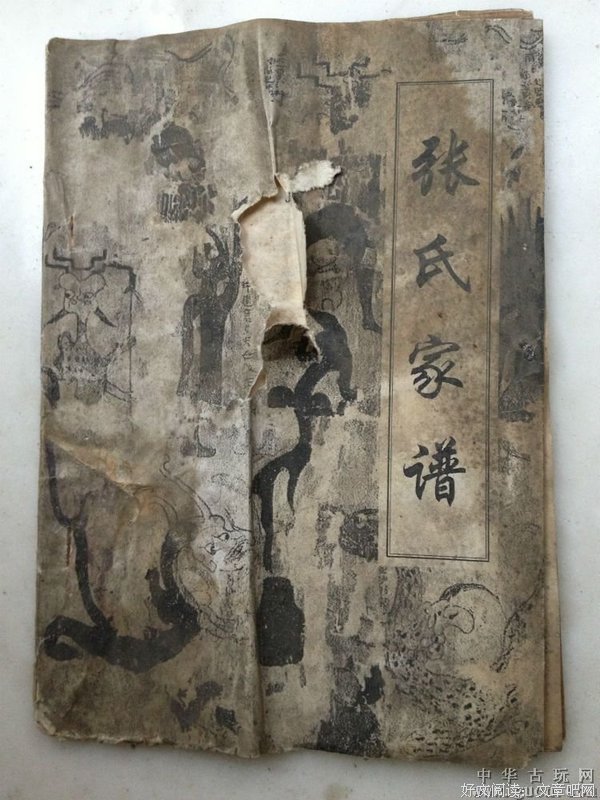 张氏家谱
中华古玩网
好文阅读：文章吧网